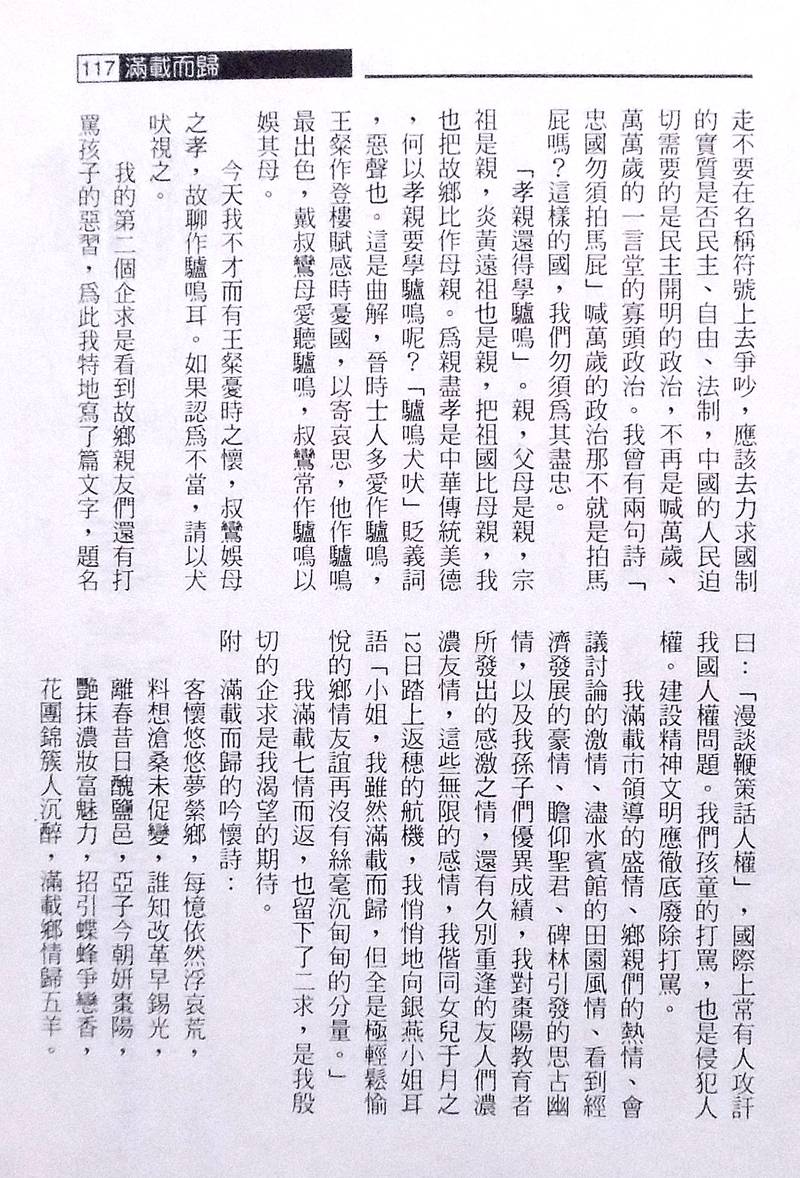 117 滿載而歸
走不要在名稱符號上去爭吵，應該去力求國制
的實質是否民主、自由、法制，中國的人民迫
切需要的是民主開明的政治，不再是喊萬歲、
萬萬歲的一言堂的寡頭政治。我曾有兩句詩「
忠國勿須拍馬屁」喊萬歲的政治那不就是拍馬
屁嗎？這樣的國，我們勿須爲其盡忠。
「孝親還得學驢鳴」。親，父母是親，宗
祖是親，炎黃遠祖也是親，把祖國比母親，我
也把故鄉比作母親。爲親盡孝是中華傳統美德
，何以孝親要學驢鳴呢？「驢鳴犬吠」貶義詞
，惡聲也。這是曲解，晉時士人多愛作驢鳴，
王粲作登樓賦感時憂國，以寄哀思，他作驢鳴
最出色，戴叔鸞母愛聽驢鳴，叔鸞常作驢鳴以
娛其母。
今天我不才而有王粲憂時之懷，叔鸞娛母
之孝，故聊作驢鳴耳。如果認爲不當，請以犬
吠視之。
我的第二個企求是看到故鄉親友們還有打
罵孩子的惡習，爲此我特地寫了篇文字，題名
曰：「漫談鞭策話人權」，國際上常有人攻訐
我國人權問題。我們孩童的打罵，也是侵犯人
權。建設精神文明應徹底廢除打罵。
我滿載市領導的盛情、鄉親們的熱情、會
議討論的激情、濜水賓館的田園風情、看到經
濟發展的豪情、瞻仰聖君、碑林引發的思古幽
情，以及我孫子們優異成績，我對棗陽教育者
所發出的感激之情，還有久別重逢的友人們濃
濃友情，這些無限的感情，我偕同女兒于月之
12日踏上返穗的航機，我悄悄地向銀燕小姐耳
語「小姐，我雖然滿載而歸，但全是極輕鬆愉
悅的鄉情友誼再沒有絲毫沉甸甸的分量。」
我滿載七情而返，也留下了二求，是我殷
切的企求是我渴望的期待。
附　滿載而歸的吟懷詩：
客懷悠悠夢縈鄉，每憶依然浮哀荒，
料想滄桑未促變，誰知改革早錫光，
離春昔日醜鹽邑，亞子今朝妍棗陽，
艷抹濃妝富魅力，招引蝶蜂爭戀香，
花團錦簇人沉醉，滿載鄉情歸五羊。